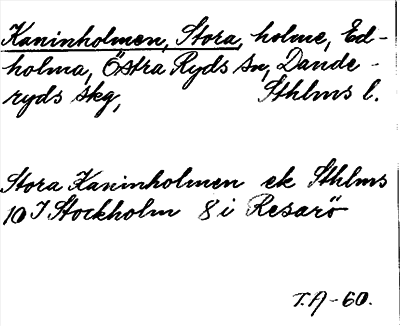 Kaninholmen, Stora, holme, Ed-
holma, Östra Ryds sn, Dande-
ryds skg, Sthlms l.
Stora Kaninholmen ek Sthlms
10 I Stockholm 8 i Resarö
T.A-60.